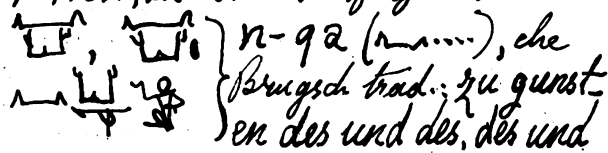 n-qa (𓈖....), che
Brugsch trad.: zu gunst-
en des und des, des und